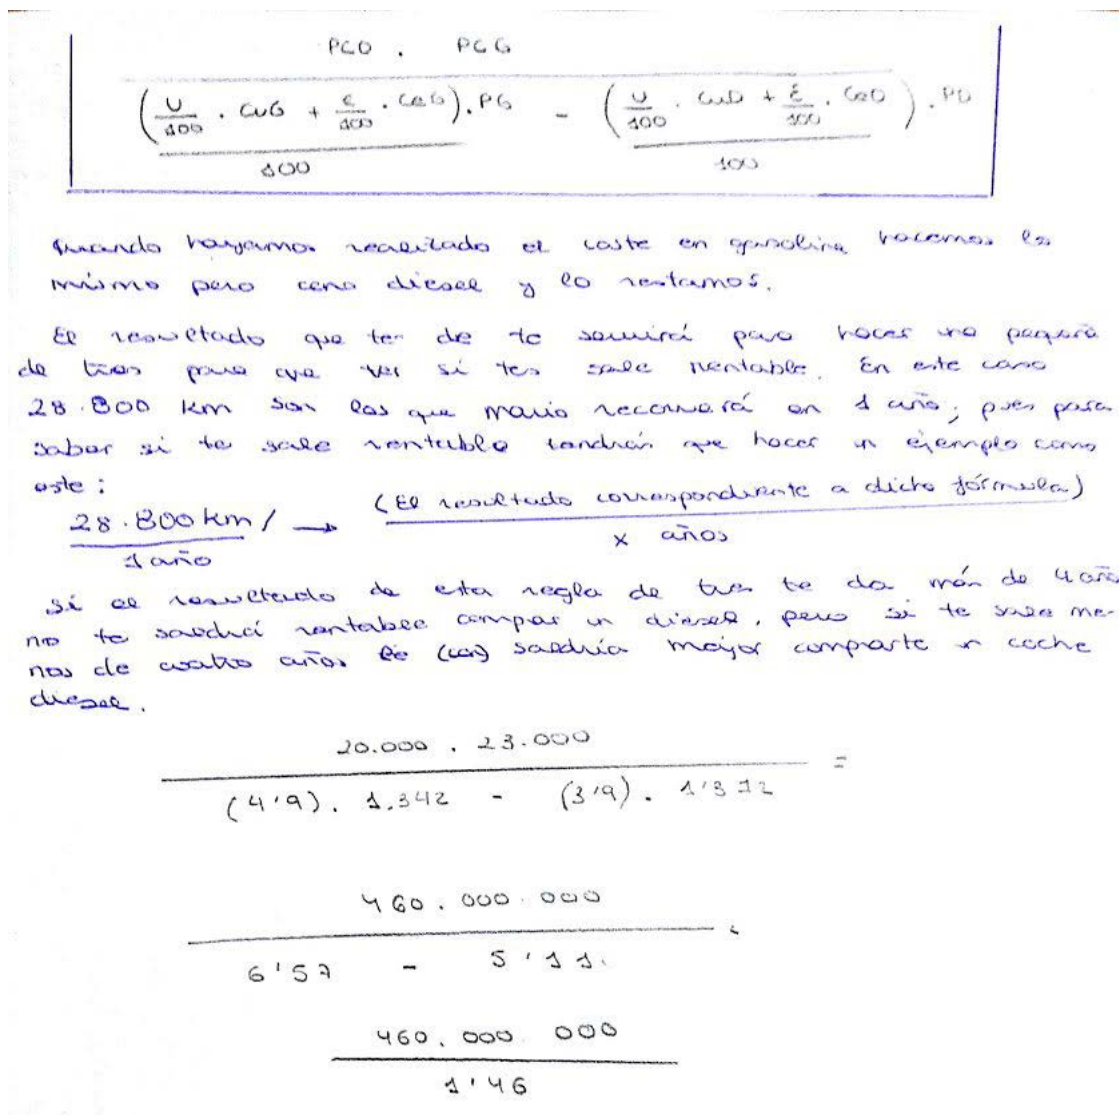 PCD . PCG
(U/100 . CuG + E/100 . CeG) . PG - (U/100 . CuD + E/100 . CeD) . PD
100 100
Cuando hayamos realizado el coste en gasolina hacemos lo
mismo pero cono diesel y lo restamos.
El resultado que ter de te servirá para hacer una pequeña
de tres para que ver si tes sale rentable. En este caso
28.800 km son los que Mario recorrerá en 1 año, pues para
saber si te sale rentable tendrás que hacer un ejemplo como
este:
28.800 km / → (El resultado correspondiente a dicha fórmula)
1 año x años
Si el resultado de esta regla de tres te da más de 4 años
no te saldrá rentable compar un diesel, pero si te sale me-
nos de cuatro años le saldría mejor comprarte un coche
diesel.
20.000 . 23.000
(4'9) . 1.342 - (3'9) . 1'312 =
460.000.000
6'57 - 5'11.
460.000.000
1'46